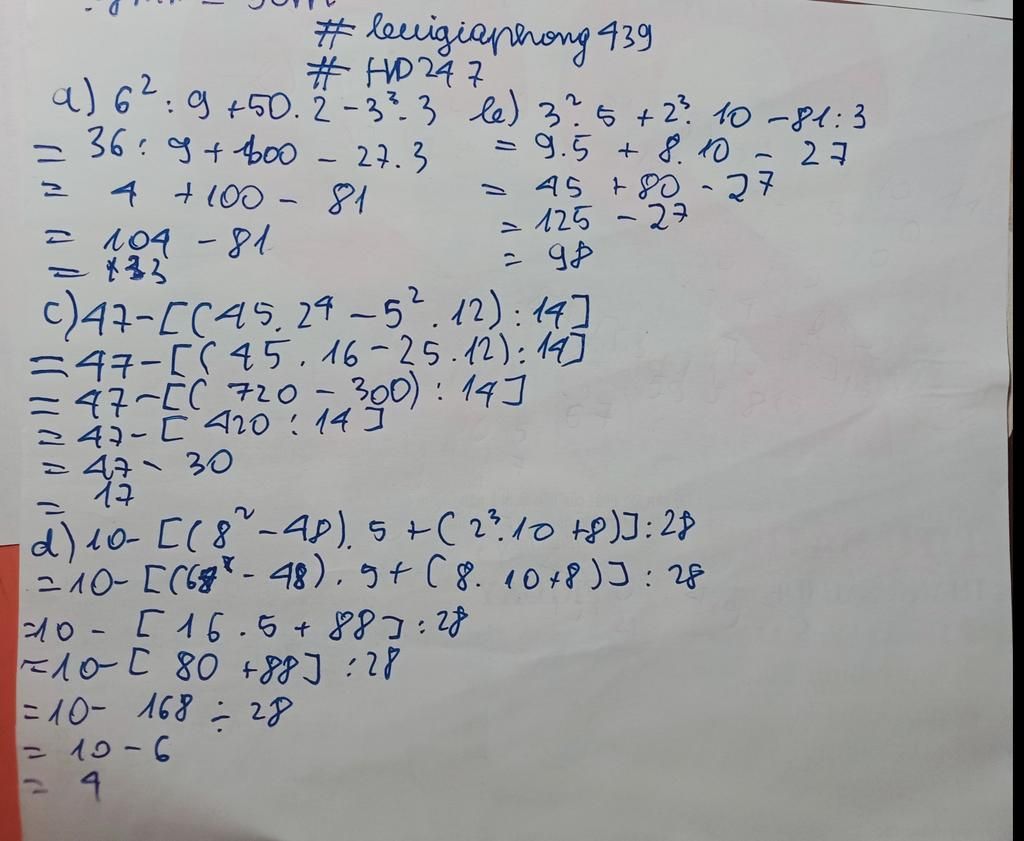 # leuigiaphong439
# HD247
a) 6² : 9 + 50 . 2 - 3³ . 3
= 36 : 9 + 100 - 27 . 3
= 4 + 100 - 81
= 104 - 81
b) 3² . 5 + 2³ . 10 - 81 : 3
= 9 . 5 + 8 . 10 - 27
= 45 + 80 - 27
= 125 - 27
= 98
c) 47 - [( 45 . 2⁴ - 5² . 12) : 14]
= 47 - [( 45 . 16 - 25 . 12) : 14]
= 47 - [( 720 - 300) : 14]
= 47 - [ 420 : 14]
= 47 - 30
= 17
d) 10 - [( 8² - 48) . 5 + ( 2³ . 10 + 8)] : 28
= 10 - [(64 - 48) . 5 + ( 8 . 10 + 8)] : 28
= 10 - [ 16 . 5 + 88] : 28
= 10 - [ 80 + 88] : 28
= 10 - 168 ÷ 28
= 10 - 6
= 4